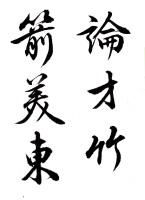 論才竹
箭美東